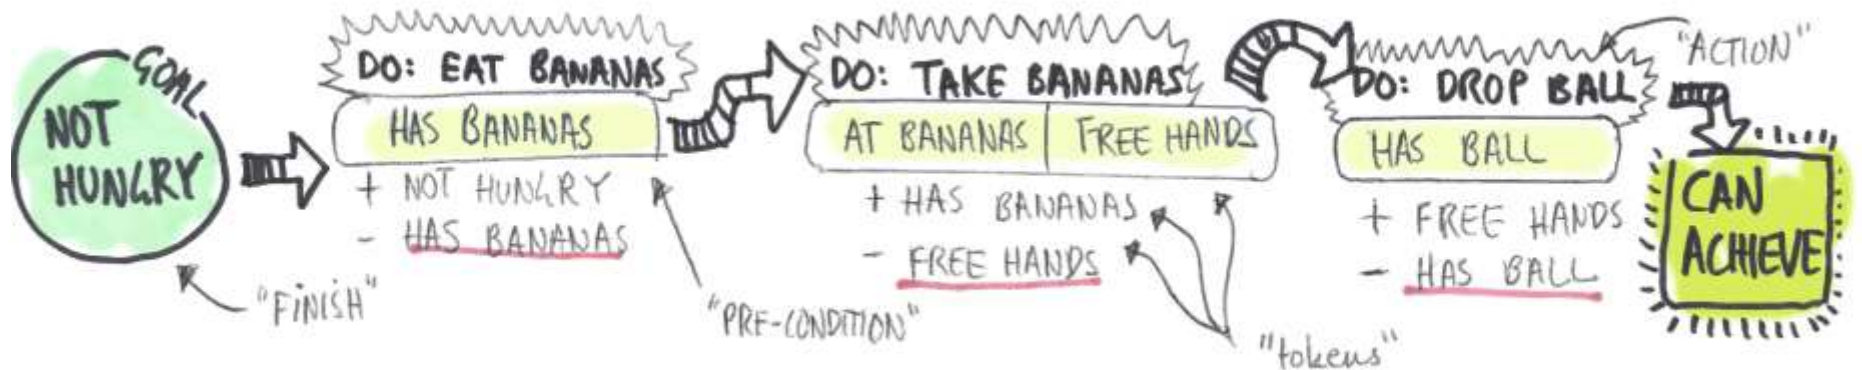 GOAL
NOT
HUNGRY
"FINISH"
DO: EAT BANANAS
HAS BANANAS
+ NOT HUNGRY
- HAS BANANAS
"PRE-CONDITION"
DO: TAKE BANANAS
AT BANANAS | FREE HANDS
+ HAS BANANAS
- FREE HANDS
"tokens"
DO: DROP BALL
HAS BALL
+ FREE HANDS
- HAS BALL
"ACTION"
CAN
ACHIEVE